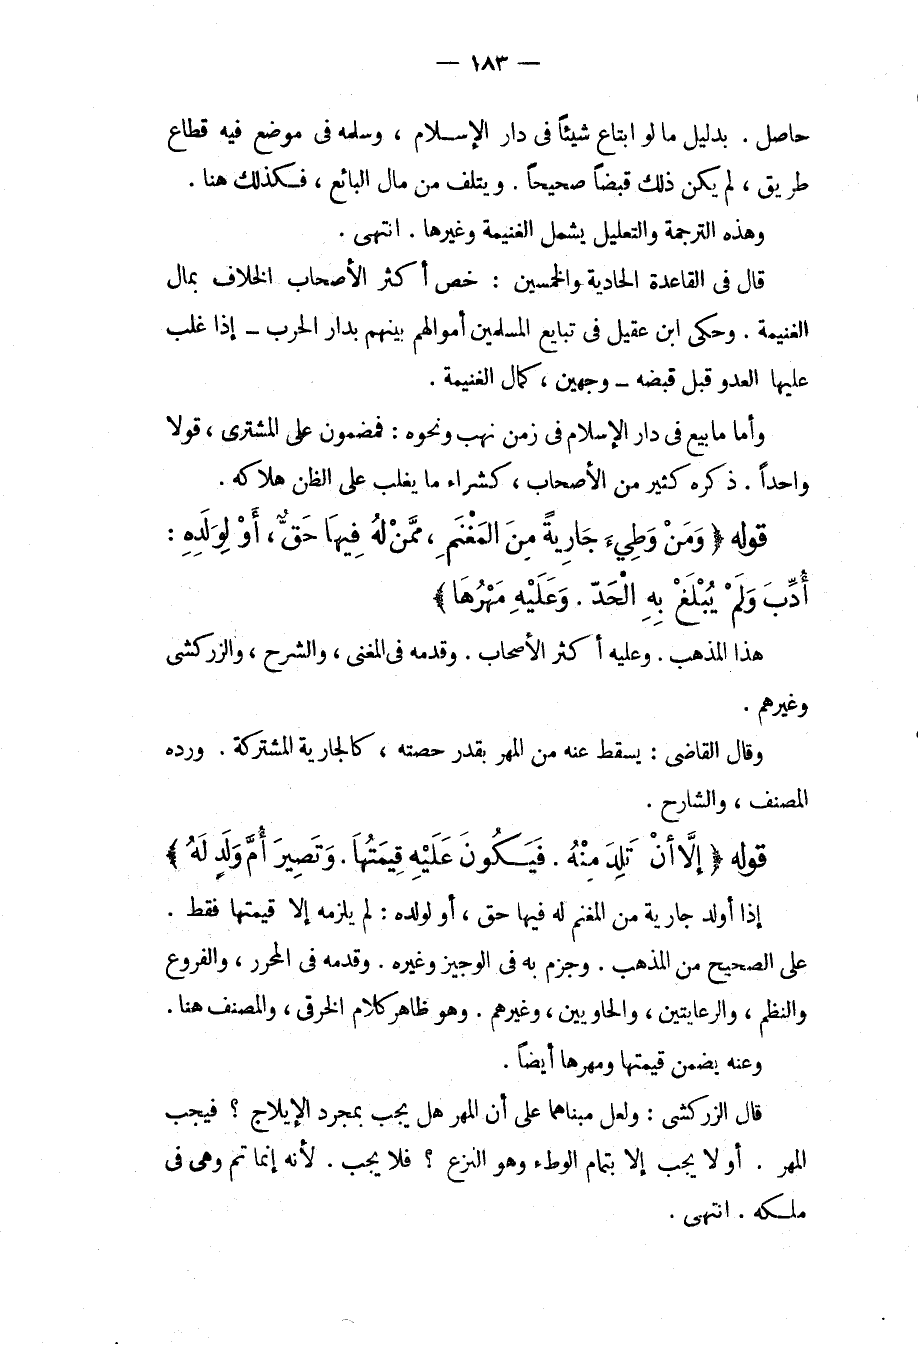 — ١٨٣ —
حاصل . بدليل ما لو ابتاع شيئاً فى دار الإسلام ، وسلمه فى موضع فيه قطاع
طريق ، لم يكن ذلك قبضاً صحيحاً . ويتلف من مال البائع ، فكذلك هنا .
وهذه الترجمة والتعليل يشمل الغنيمة وغيرها . انتهى .
قال فى القاعدة الحادية والخمسين : خص أكثر الأصحاب الخلاف بمال
الغنيمة . وحكى ابن عقيل فى تبايع المسلمين أموالهم بينهم بدار الحرب – إذا غلب
عليها العدو قبل قبضه – وجهين ، كمال الغنيمة .
وأما ما بيع فى دار الإسلام فى زمن نهب ونحوه : فمضمون على المشترى ، قولا
واحداً . ذكره كثير من الأصحاب ، كشراء ما يغلب على الظن هلاكه .
قوله ﴿ وَمَنْ وَطِيءَ جَارِيةً مِنَ المَغْنَمِ ، مِمَّنْ لَهُ فِيهَا حَقٌّ ، أَوْ لِوَلَدِهِ :
أُدِّبَ وَلَمْ يُبْلَغْ بِهِ الْحَدّ . وَعَلَيْهِ مَهْرُهَا ﴾
هذا المذهب . وعليه أكثر الأصحاب . وقدمه فى المغنى ، والشرح ، والزركشى
وغيرهم .
وقال القاضى : يسقط عنه من المهر بقدر حصته ، كالجارية المشتركة . ورده
المصنف ، والشارح .
قوله ﴿ إِلَّا أَنْ تَلِدَ مِنْهُ . فَيَكُونَ عَلَيْهِ قِيمَتُهَا . وَتَصِيرَ أُمَّ وَلَدٍ لَهُ ﴾
إذا أولد جارية من المغنم له فيها حق ، أو لولده : لم يلزمه إلا قيمتها فقط .
على الصحيح من المذهب . وجزم به فى الوجيز وغيره . وقدمه فى المحرر ، والفروع
والنظم ، والرعايتين ، والحاويين ، وغيرهم . وهو ظاهر كلام الخرقى ، والمصنف هنا .
وعنه يضمن قيمتها ومهرها أيضاً .
قال الزركشى : ولعل مبناهما على أن المهر هل يجب بمجرد الإيلاج ؟ فيجب
المهر . أو لا يجب إلا بتمام الوطء وهو النزع ؟ فلا يجب . لأنه إنما تم وهى فى
ملكه . انتهى .